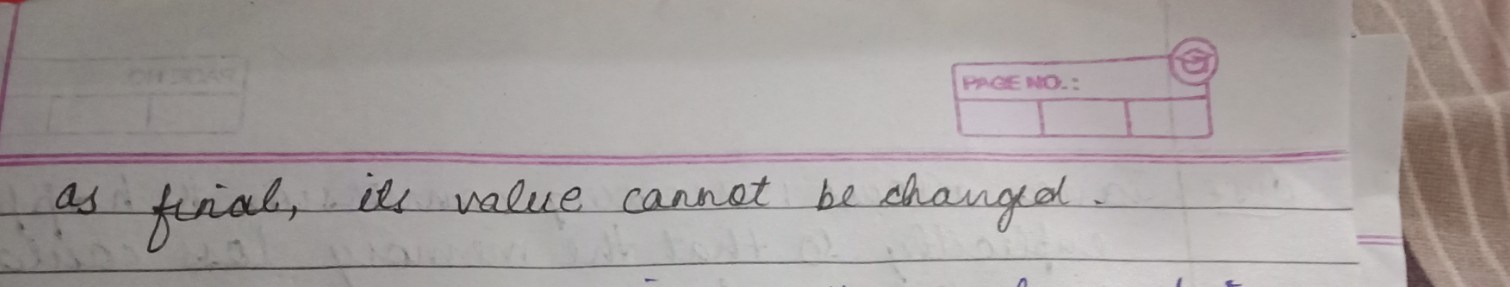 PAGE NO.:
as final, its value cannot be changed.